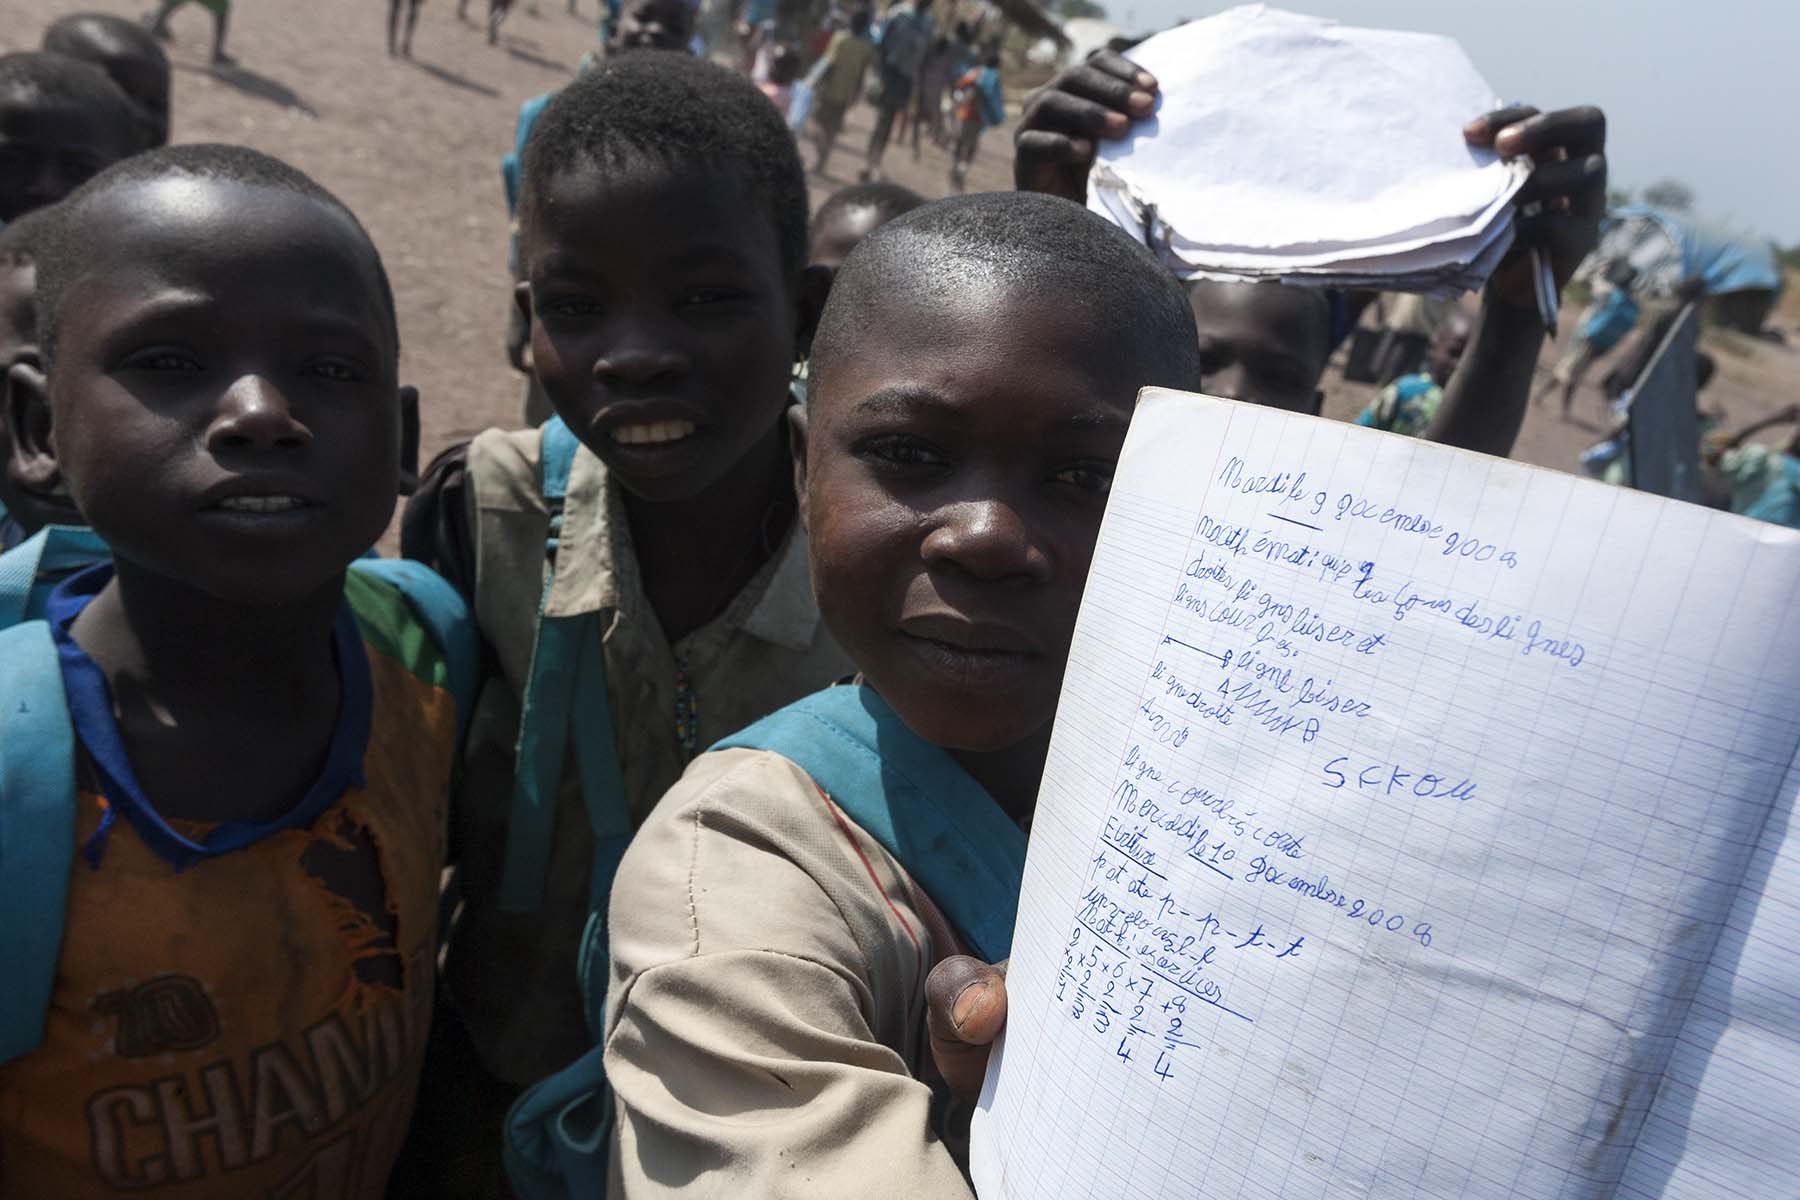 70
CHAM
Mardi le 9 Décembre 2009
mathématique Leçons des lignes
droites, lignes biser et
ligns courbes.
A B ligne biser
A B
ligne droite
A B
SEKOU
ligne courbe
Mercredi le 10 Décembre 2009
Ecriture
patate p - p - t - t
Math: exercices
2 × 5 × 6 × 7 + 8
×2 2 2 2 2
1 3 3 4 4